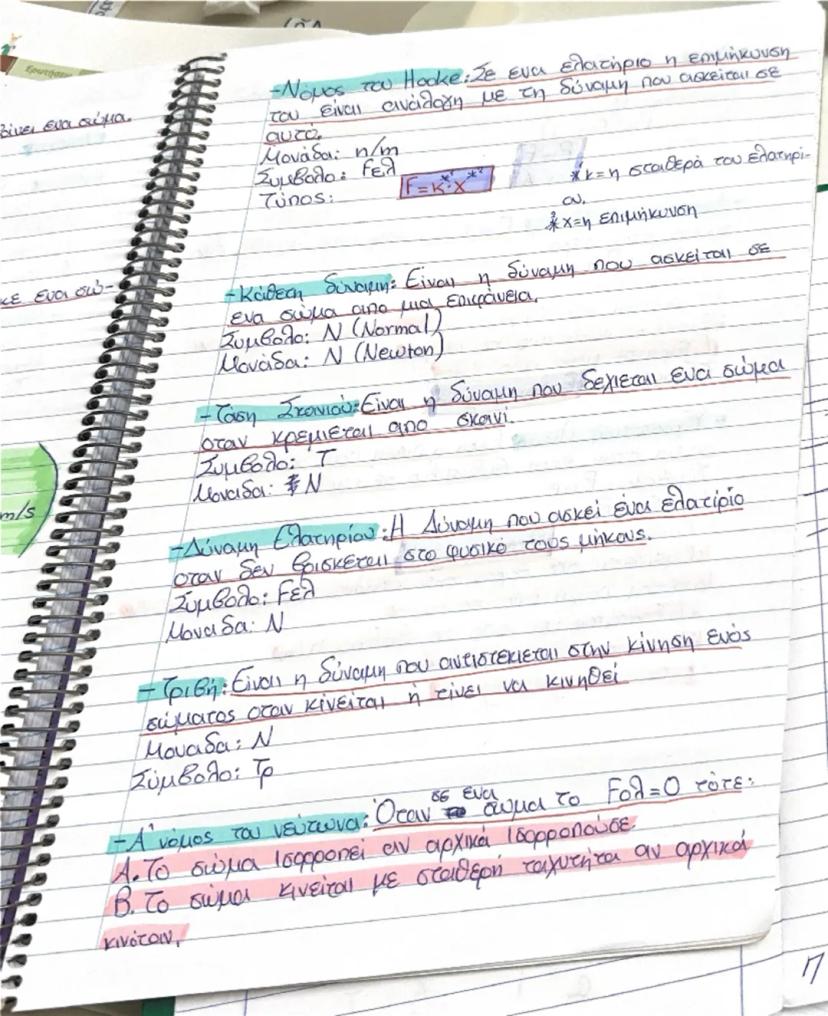 Ερωτήσεις
δίνει ενα σώμα.
κε ενα σώ-
m/s
-Νόμος του Hooke: Σε ενα ελατήριο η επιμήκυνση
του είναι ανάλογη με τη δύναμη που ασκείται σε
αυτό.
Μονάδα: n/m
Σύμβολο: Fελ
Τύπος: F=K*·X**
*k=η σταθερά του ελατηρί-
ου.
*x=η επιμήκυνση
-Κάθετη δύναμη: Είναι η δύναμη που ασκείται σε
ενα σώμα απο μια επιφάνεια.
Σύμβολο: N (Normal)
Μονάδα: N (Newton)
-Τάση Σχοινιού: Είναι η δύναμη που δεχιεται ενα σώμα
οταν κρεμιεται απο σκοινί.
Σύμβολο: T
Μοναδα: N
-Δύναμη Ελατηρίου: Η Δύναμη που ασκεί ένα ελατίριο
οταν δεν βρισκεται στο φυσικό τους μήκους.
Σύμβολο: Fελ
Μοναδα: N
-Τριβή: Είναι η δύναμη που αντιστεκιεται στην κίνηση ενός
σώματος οταν κίνείται ή τίνει να κινηθεί
Μοναδα: N
Σύμβολο: Τρ
-Α' νόμος του νεύτωνα: Όταν σε ενα σωμα το Fολ=0 τότε:
Α. Το σώμα Ισορροπεί αν αρχικά Ισορροπούσε.
Β. Το σώμα κινείται με σταθερή ταχυτήτα αν αρχικά
κινόταν.